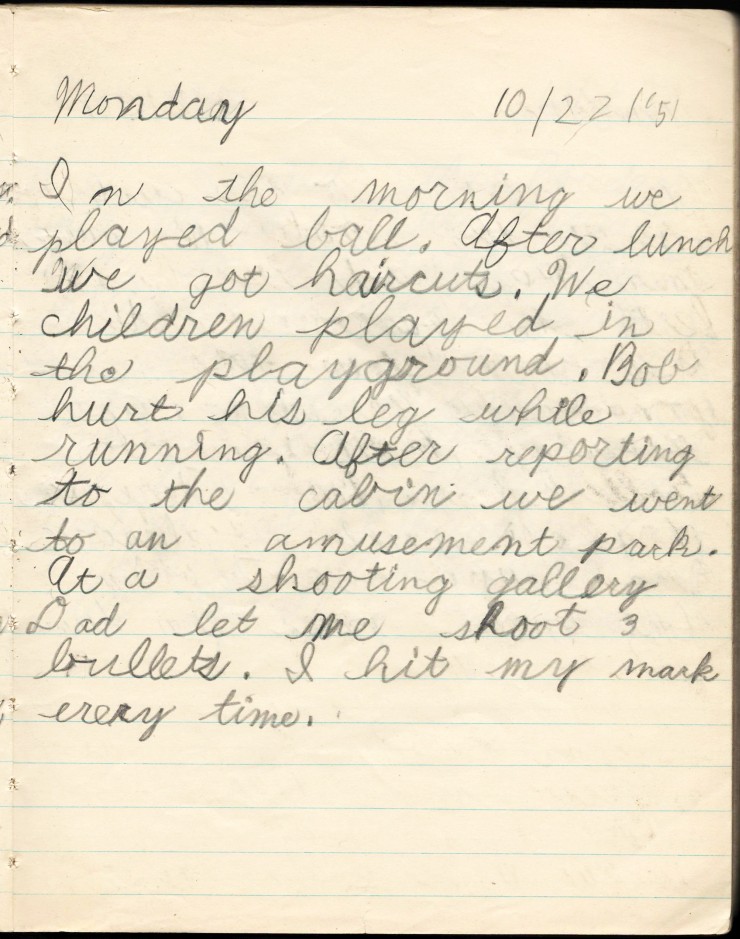 Monday 10/22/'51
In the morning we
played ball. After lunch
we got haircuts. We
children played in
the playground. Bob
hurt his leg while
running. After reporting
to the cabin we went
to an amusement park.
At a shooting gallery
Dad let me shoot 3
bullets. I hit my mark
every time.